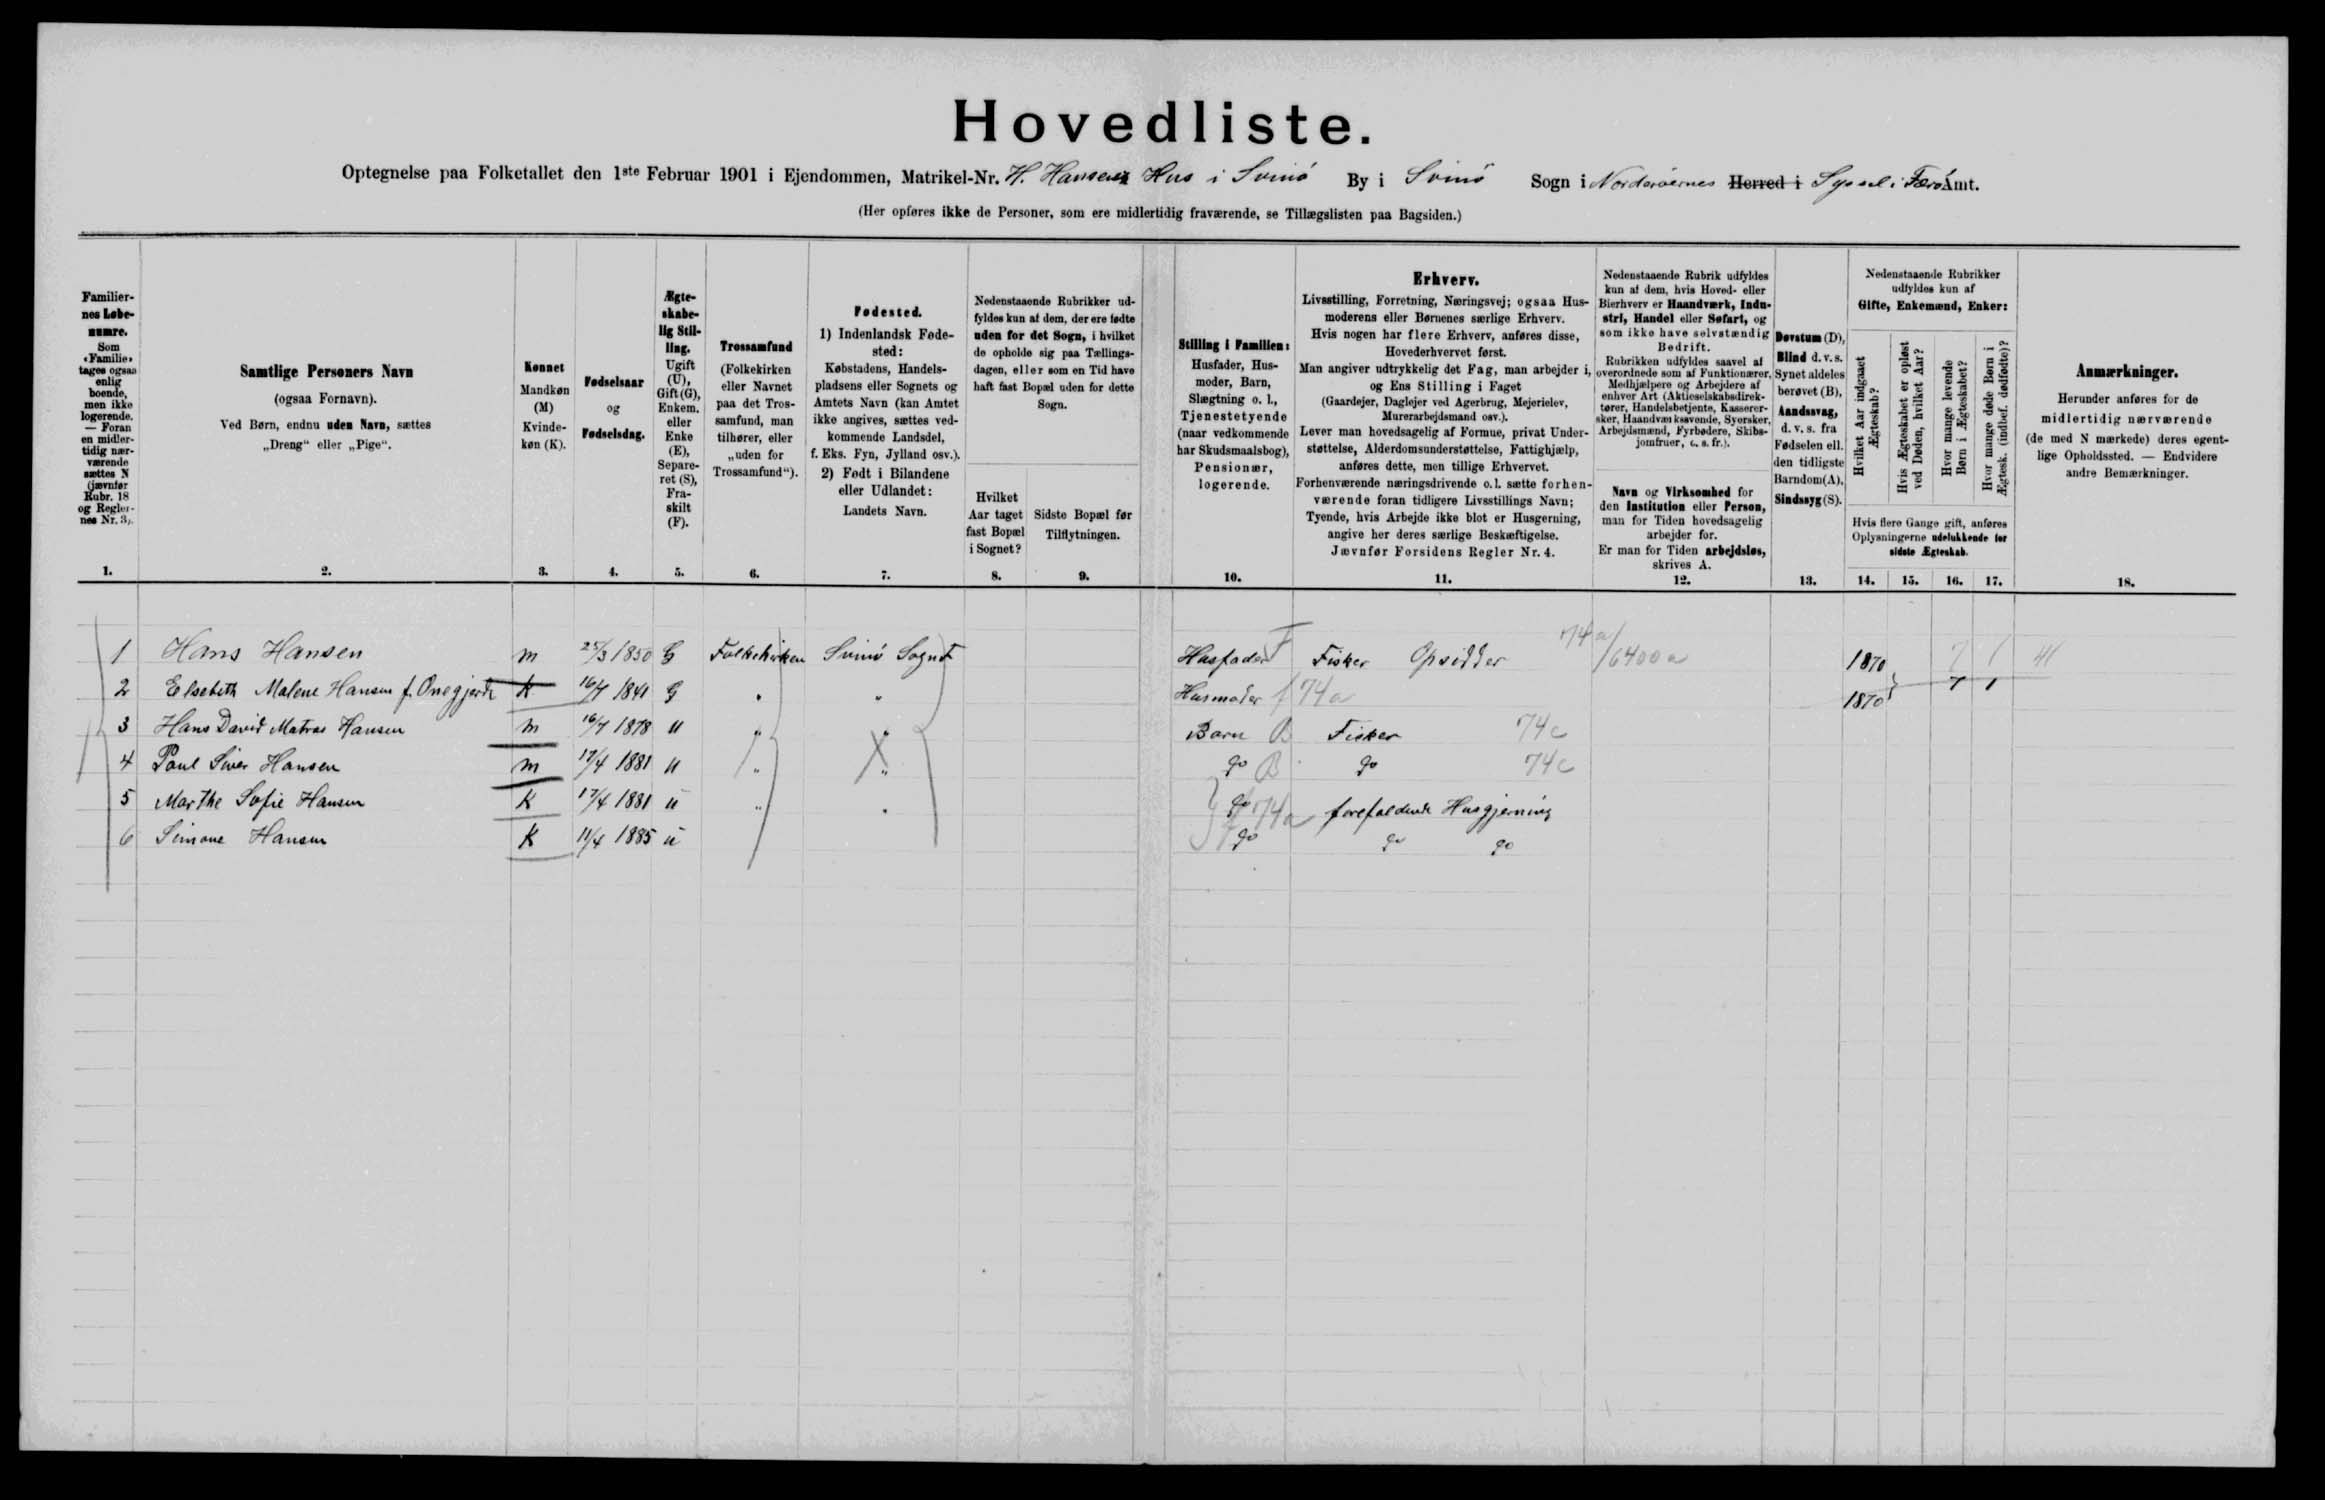 Hovedliste.
Optegnelse paa Folketallet den 1ste Februar 1901 i Ejendommen, Matrikel-Nr. H. Hansens Hus i Svinö By i Svinö Sogn i Norderöernes Herred i Syssel i Færö Amt.
(Her opføres ikke de Personer, som ere midlertidig fraværende, se Tillægslisten paa Bagsiden.)
Familiernes Løbenumre.
Som «Familie» tages ogsaa enlig boende, men ikke logerende. — Foran en midlertidig nærværende sættes N (jævnfør Rubr. 18 og Reglernes Nr. 3).
1.
Samtlige Personers Navn
(ogsaa Fornavn).
Ved Børn, endnu uden Navn, sættes
„Dreng“ eller „Pige“.
2.
Kønnet
Mandkøn
(M)
Kvinde-
køn (K).
3.
Fødselsaar
og
Fødselsdag.
4.
Ægte-
skabe-
lig Stil-
ling.
Ugift
(U),
Gift (G),
Enkem.
eller
Enke
(E),
Separe-
ret (S),
Fra-
skilt
(F).
5.
Trossamfund
(Folkekirken
eller Navnet
paa det Tros-
samfund, man
tilhører, eller
„uden for
Trossamfund“).
6.
Fødested.
1) Indenlandsk Føde-
sted:
Købstadens, Handels-
pladsens eller Sognets og
Amtets Navn (kan Amtet
ikke angives, sættes ved-
kommende Landsdel,
f. Eks. Fyn, Jylland osv.).
2) Født i Bilandene
eller Udlandet:
Landets Navn.
7.
Nedenstaaende Rubrikker ud-
fyldes kun af dem, der ere fødte
uden for det Sogn, i hvilket
de opholde sig paa Tællings-
dagen, eller som en Tid have
haft fast Bopæl uden for dette
Sogn.
Hvilket
Aar taget
fast Bopæl
i Sognet?
8.
Sidste Bopæl før
Tilflytningen.
9.
Stilling i Familien:
Husfader, Hus-
moder, Barn,
Slægtning o. l.,
Tjenestetyende
(naar vedkommende
har Skudsmaalsbog),
Pensionær,
logerende.
10.
Erhverv.
Livsstilling, Forretning, Næringsvej; ogsaa Hus-
moderens eller Børnenes særlige Erhverv.
Hvis nogen har flere Erhverv, anføres disse,
Hovederhvervet først.
Man angiver udtrykkelig det Fag, man arbejder i,
og Ens Stilling i Faget
(Gaardejer, Daglejer ved Agerbrug, Mejerielev,
Murerarbejdsmand osv.).
Lever man hovedsagelig af Formue, privat Under-
støttelse, Alderdomsunderstøttelse, Fattighjælp,
anføres dette, men tillige Erhvervet.
Forhenværende næringsdrivende o. l. sætte forhen-
værende foran tidligere Livsstillings Navn;
Tyende, hvis Arbejde ikke blot er Husgerning,
angive her deres særlige Beskæftigelse.
Jævnfør Forsidens Regler Nr. 4.
11.
Nedenstaaende Rubrik udfyldes
kun af dem, hvis Hoved- eller
Bierhverv er Haandværk, Indu-
stri, Handel eller Søfart, og
som ikke have selvstændig
Bedrift.
Rubrikken udfyldes saavel af
overordnede som af Funktionærer,
Medhjælpere og Arbejdere af
enhver Art (Aktieselskabsdirek-
tører, Handelsbetjente, Kasserer-
sker, Haandværkssvende, Syersker,
Arbejdsmænd, Fyrbødere, Skibs-
jomfruer, o. s. fr.).
Navn og Virksomhed for
den Institution eller Person,
man for Tiden hovedsagelig
arbejder for.
Er man for Tiden arbejdsløs,
skrives A.
12.
Døvstum (D),
Blind d. v. s.
Synet aldeles
berøvet (B),
Aandssvag,
d. v. s. fra
Fødselen ell.
den tidligste
Barndom (A),
Sindssyg (S).
13.
Nedenstaaende Rubrikker
udfyldes kun af
Gifte, Enkemænd, Enker:
Hvilket Aar indgaaet
Ægteskab?
Hvis Ægteskabet er opløst
ved Døden, hvilket Aar?
Hvor mange levende
Børn i Ægteskabet?
Hvor mange døde Børn i
Ægtesk. (indbef. dødfødte)?
Hvis flere Gange gift, anføres
Oplysningerne udelukkende for
sidste Ægteskab.
14. 15. 16. 17.
Anmærkninger.
Herunder anføres for de
midlertidig nærværende
(de med N mærkede) deres egent-
lige Opholdssted. — Endvidere
andre Bemærkninger.
18.
1 Hans Hansen m 25/3 1850 G Folkekirken Svinö Sogn Husfader F Fisker Opsidder 74a/6400a 1870 7 1 41
2 Elsebeth Malene Hansen f. Onegjerde K 16/7 1841 G " " Husmoder f 74a 1870 7 1
3 Hans David Matras Hansen m 16/7 1878 U " " Barn B Fisker 74c
4 Poul Siver Hansen m 17/4 1881 U " " do B do 74c
5 Marthe Sofie Hansen K 17/4 1881 U " " do f 74a forefaldende Husgjerning
6 Simone Hansen K 11/4 1885 U do do do